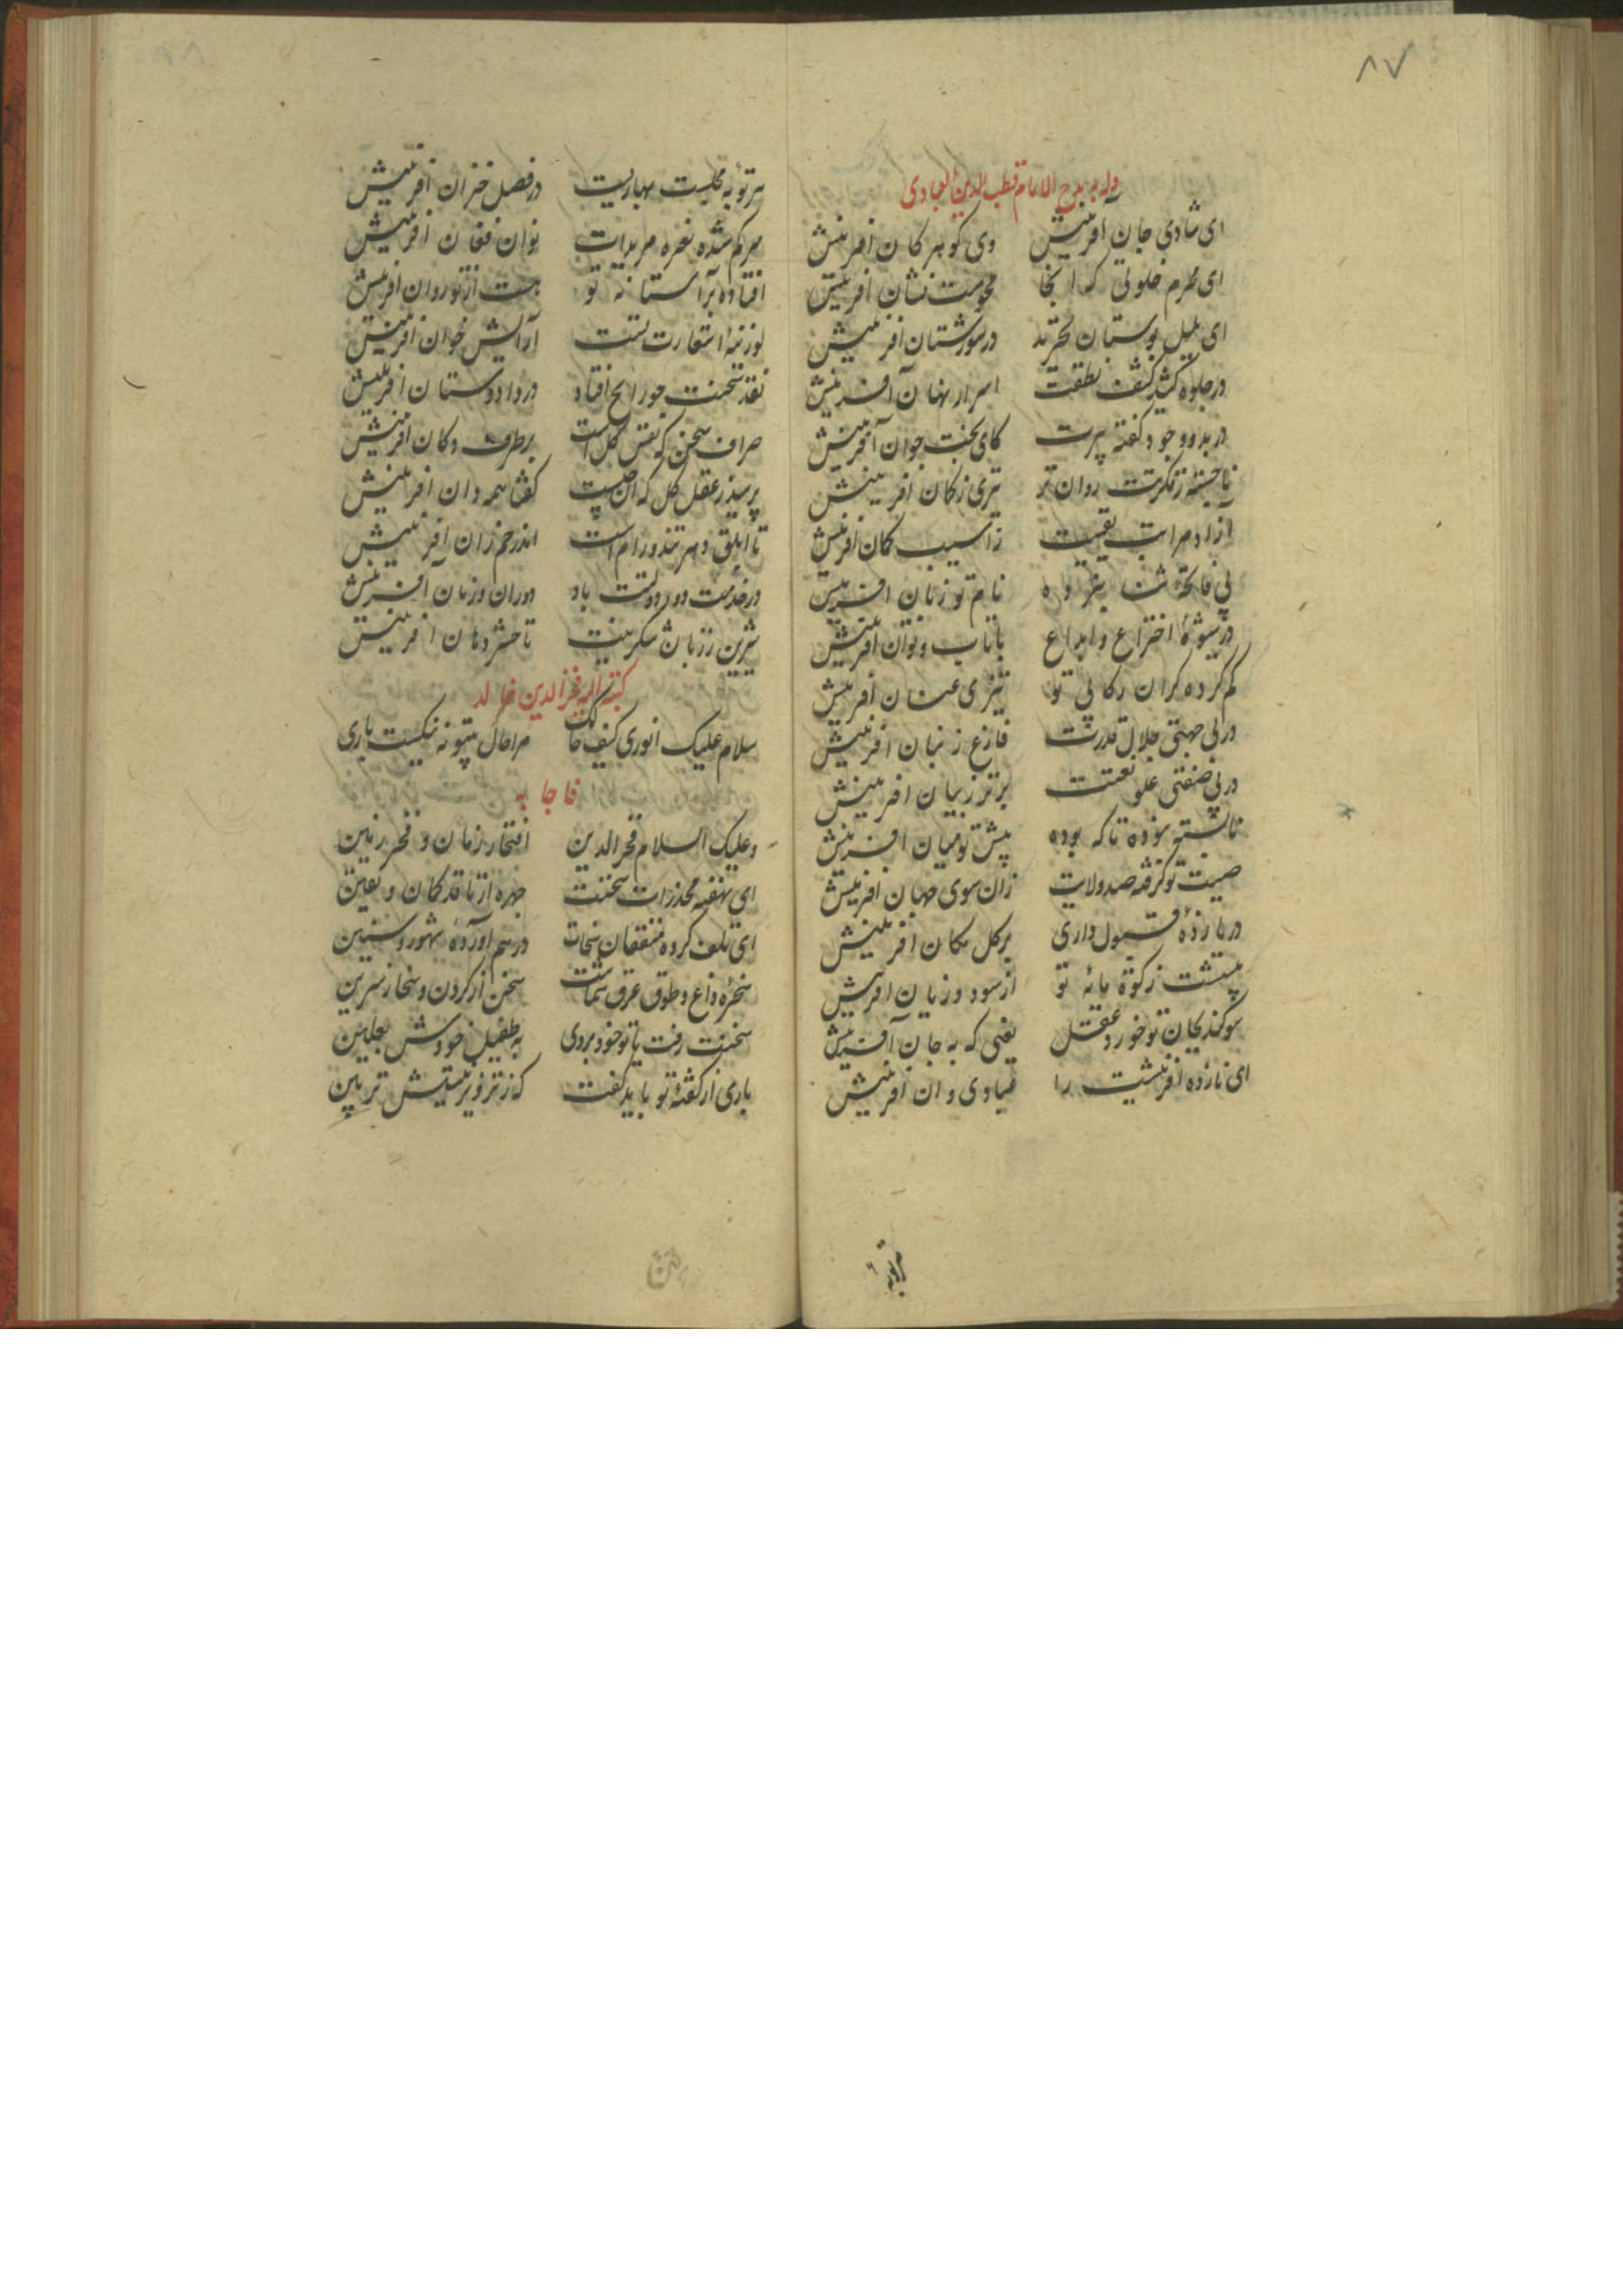 ۸۷
وله یمدح الامام قطب الدین العبادی
ای شادی جان آفرینش وی گوهر کان آفرینش
ای محرم خلوتی که آنجا محوست نشان آفرینش
ای بلبل بوستان تجرید در شورستان آفرینش
در جلوه کشد کشف نطقت اسرار نهان آفرینش
در بدو وجود گفته پیرت کای بخت جوان آفرینش
ناجسته ز فکرتت روان تر تیری ز کمان آفرینش
آزاد مراتب یقینت ز آسیب گمان آفرینش
بی فاتحه ثنا نبرده نام تو زبان آفرینش
در شیوه اختراع و ابداع با تاب و توان آفرینش
کم کرده گران رکابی تو تیزی عنان آفرینش
در بی جهتی جلال قدرت فارغ ز بنان آفرینش
در بی صفتی علو نعتت برتر ز بیان آفرینش
نابسته بوده تا که بوده پیش تو میان آفرینش
صیت تو گرفته صد ولایت زان سوی جهان آفرینش
در بازده قبول داری بر کل مکان آفرینش
بیشست زکوة مایه تو از سود و زیان آفرینش
سوگند بجان تو خورد عقل یعنی که به جان آفرینش
ای نازده آفرینشت را میاوی و ان آفرینش
هر توبه
هر توبه مجلست بهاریست در فصل خزان آفرینش
هر کم شده نعره مریدانت توان فغان آفرینش
افتاده بر آستانه تو جست از تو روان آفرینش
لوزینه استعارت تست آرایش خوان آفرینش
نقد سخنت چو رایج افتاد در داد و ستان آفرینش
صراف سخن که نفس کل است بر طرف دکان آفرینش
پرسید ز عقل کل که آن چیست گفتا همه دان آفرینش
تا ابلق دهر تند و رام است اندر خم ران آفرینش
در خدمت دور دولتت باد دوران و زمان آفرینش
شیرین ز زبان شکرینت تا حشر دهان آفرینش
کتبه الیه فخرالدین خالد
سلام علیک انوری کیف حالک مرا حال بیتو نه نیکست باری
فاجابه
وعلیک السلام فخرالدین افتخار زمان و فخر زمین
ای نهفته مخدرات سخنت چهره از ناقد گمان و یقین
ای تلف کرده منفقان سخات در هم آورده شهور و سنین
سخره داغ و طوق عرق شماست سخن از گردن و سخا ز سرین
سخنت رفت یا تو خود بردی به طفیل خودش بعلیین
باری از گفته تو باید گفت که ز ترفیر نیستش تزیین